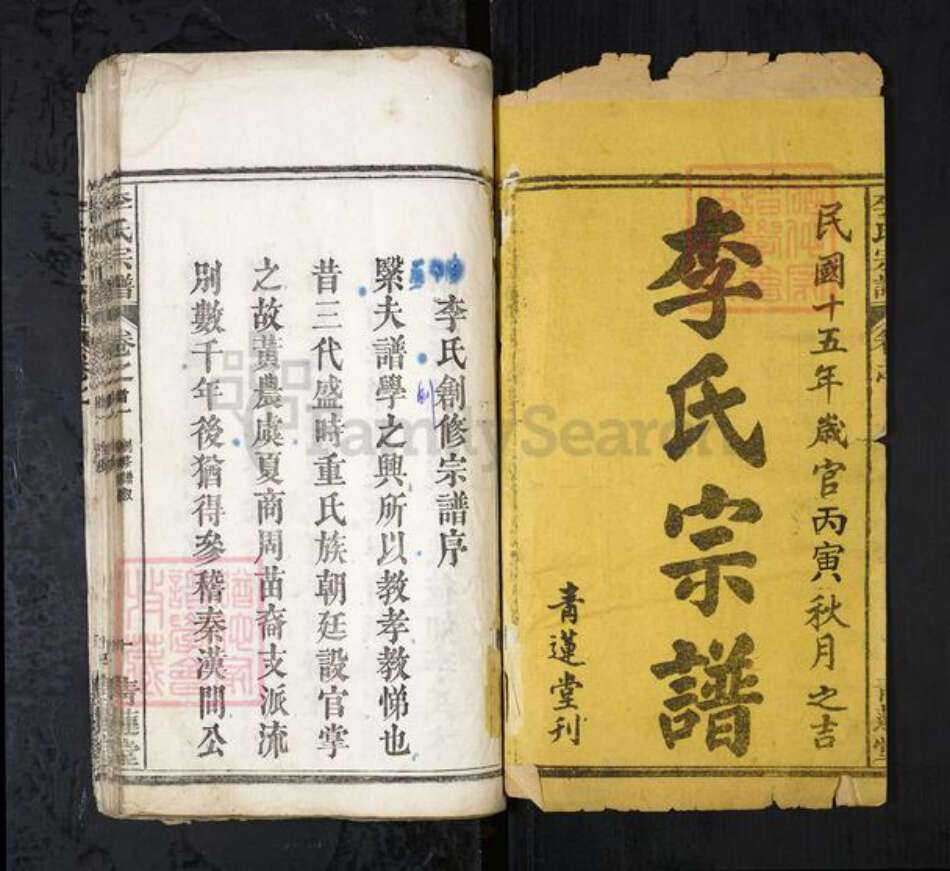 民國十五年歲官丙寅秋月之吉
李氏宗譜
青蓮堂刊
李氏創修宗譜序
槼夫譜學之興所以教孝教悌也
昔三代盛時重氏族朝廷設官掌
之故黃農虞夏商周苗裔支派流
別數千年後猶得參稽秦漢間公
李氏宗譜 卷之首
青蓮堂
FamilySearch